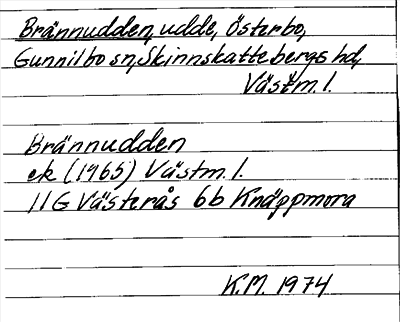 Brännudden, udde, Österbo,
Gunnilbo sn, Skinnskattebergs hd,
Västm. l.
Brännudden
ek (1965) Västm. l.
11G Västerås 6b Knäppmora
K.M. 1974